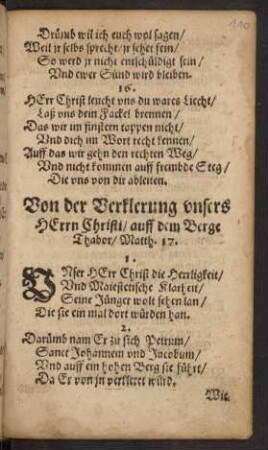 110
Drůmb wil ich euch wol sagen/
Weil jr selbs sprecht/ jr sehet fein/
So werd jr nicht entschůldigt sein/
Vnd ewer Sünd wird bleiben.
16.
HErr Christ leucht vns du wares Liecht/
Laß vns dein Fackel brennen/
Das wir im finstern tappen nicht/
Vnd dich im Wort recht kennen/
Auff das wir gehn den rechten Weg/
Vnd nicht kommen auff frembde Steg/
Die vns von dir ableiten.
Von der Verklerung vnsers
HErrn Christi/ auff dem Berge
Thabor/ Matth. 17.
1.
VNser HErr Christ die Herrligkeit/
Vnd Maiestetische Klarheit/
Seine Jünger wolt sehen lan/
Die sie ein mal dort würden han.
2.
Darůmb nam Er zu sich Petrum/
Sanct Johannem vnd Jacobum/
Vnd auff ein hohen Berg sie führt/
Da Er von jn verkleret würd.
Wie.